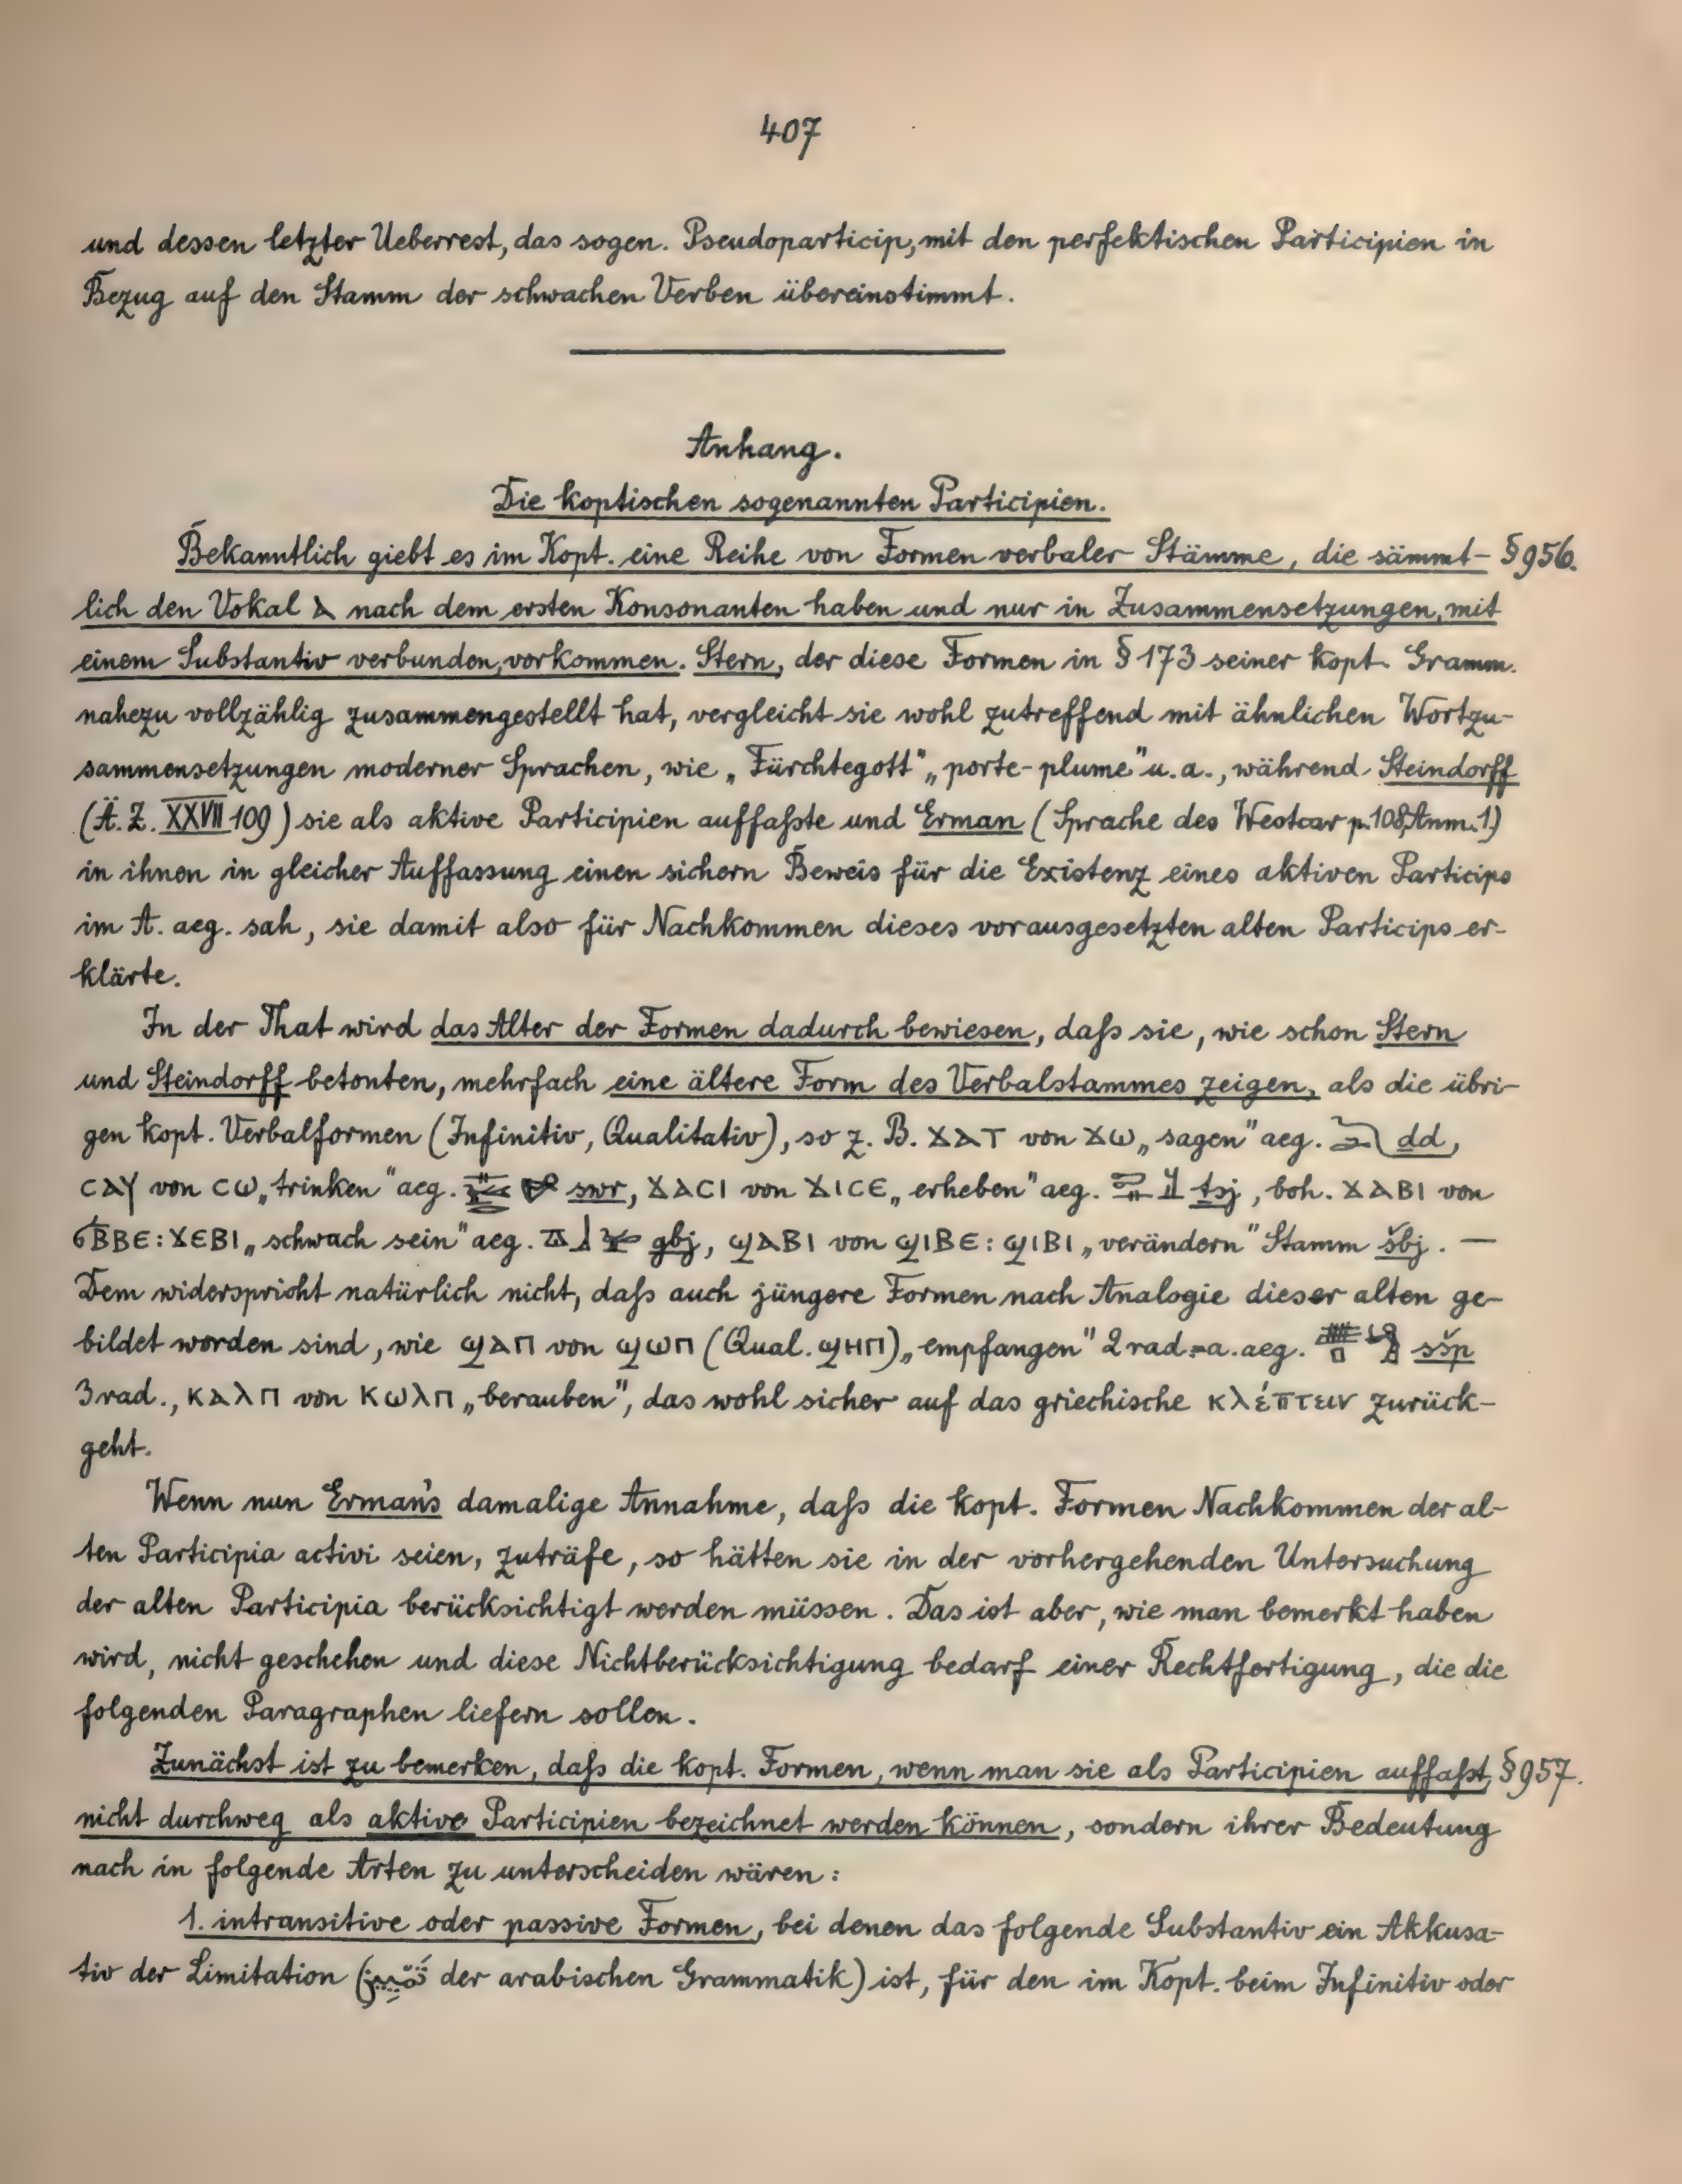 407
und dessen letzter Ueberrest, das sogen. Pseudoparticip, mit den perfektischen Participien in
Bezug auf den Stamm der schwachen Verben übereinstimmt.
Anhang.
Die koptischen sogenannten Participien.
Bekanntlich giebt es im Kopt. eine Reihe von Formen verbaler Stämme, die sämmt- § 956.
lich den Vokal ⲁ nach dem ersten Konsonanten haben und nur in Zusammensetzungen, mit
einem Substantiv verbunden, vorkommen. Stern, der diese Formen in § 173 seiner kopt. Gramm.
nahezu vollzählig zusammengestellt hat, vergleicht sie wohl zutreffend mit ähnlichen Wortzu-
sammensetzungen moderner Sprachen, wie „Fürchtegott" „porte-plume" u. a., während Steindorff
(Ä. Z. XXVII 109) sie als aktive Participien auffaßte und Erman (Sprache des Westcar p. 108, Anm. 1)
in ihnen in gleicher Auffassung einen sichern Beweis für die Existenz eines aktiven Particips
im A. aeg. sah, sie damit also für Nachkommen dieses vorausgesetzten alten Particips er-
klärte.
In der That wird das Alter der Formen dadurch bewiesen, daß sie, wie schon Stern
und Steindorff betonten, mehrfach eine ältere Form des Verbalstammes zeigen, als die übri-
gen kopt. Verbalformen (Infinitiv, Qualitativ), so z. B. ϫⲁⲧ von ϫⲱ „sagen" aeg. ḏd,
ⲥⲁⲩ von ⲥⲱ „trinken" aeg. swr, ϫⲁⲥⲓ von ϫⲓⲥⲉ „erheben" aeg. ṯsj, boh. ϫⲁⲃⲓ von
ϭⲃⲃⲉ : ϫⲉⲃⲓ „schwach sein" aeg. gbj, ϣⲁⲃⲓ von ϣⲓⲃⲉ : ϣⲓⲃⲓ „verändern" Stamm šbj. —
Dem widerspricht natürlich nicht, daß auch jüngere Formen nach Analogie dieser alten ge-
bildet worden sind, wie ϣⲁⲡ von ϣⲱⲡ (Qual. ϣⲏⲡ) „empfangen" 2 rad. = a. aeg. sšp
3 rad., ⲕⲁⲗⲡ von ⲕⲱⲗⲡ „berauben", das wohl sicher auf das griechische κλέπτειν zurück-
geht.
Wenn nun Erman's damalige Annahme, daß die kopt. Formen Nachkommen der al-
ten Participia activi seien, zuträfe, so hätten sie in der vorhergehenden Untersuchung
der alten Participia berücksichtigt werden müssen. Das ist aber, wie man bemerkt haben
wird, nicht geschehen und diese Nichtberücksichtigung bedarf einer Rechtfertigung, die die
folgenden Paragraphen liefern sollen.
Zunächst ist zu bemerken, daß die kopt. Formen, wenn man sie als Participien auffaßt, § 957.
nicht durchweg als aktive Participien bezeichnet werden können, sondern ihrer Bedeutung
nach in folgende Arten zu unterscheiden wären:
1. intransitive oder passive Formen, bei denen das folgende Substantiv ein Akkusa-
tiv der Limitation (تمييز der arabischen Grammatik) ist, für den im Kopt. beim Infinitiv oder